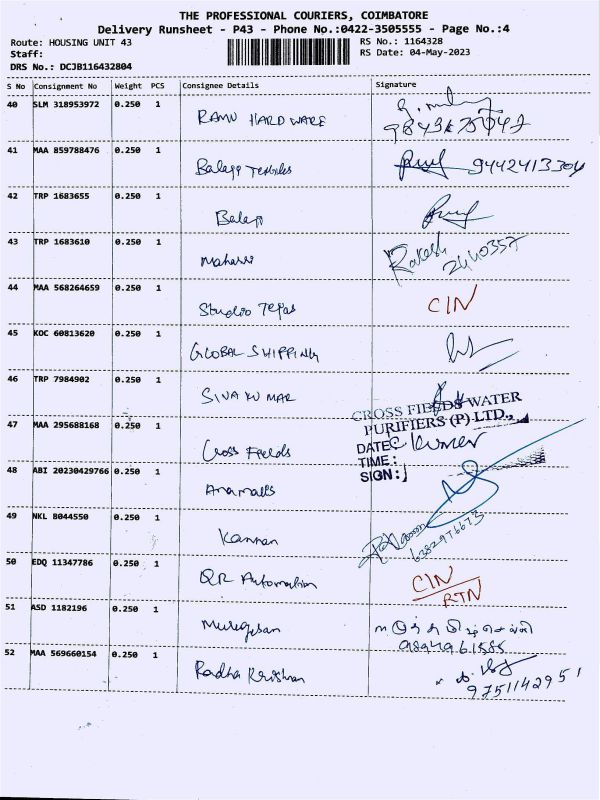 THE PROFESSIONAL COURIERS, COIMBATORE
Delivery Runsheet - P43 - Phone No.:0422-3505555 - Page No.:4
Route: HOUSING UNIT 43 RS No.: 1164328
Staff: RS Date: 04-May-2023
DRS No.: DCJB116432804
S No Consignment No Weight PCS Consignee Details Signature
40 SLM 318953972 0.250 1
RAMU HARDWARE
41 MAA 859788476 0.250 1
Balaji Textiles 9442413304
42 TRP 1683655 0.250 1
Balaji
43 TRP 1683610 0.250 1
Rakesh
2440357
44 MAA 568264659 0.250 1
Studio Tejas CIN
45 KOC 60813620 0.250 1
GLOBAL SHIPPING
46 TRP 7984902 0.250 1
SIVA KUMAR
CROSS FIELDS WATER
PURIFIERS (P) LTD.,
47 MAA 295688168 0.250 1
DATE: Kumar
Cross Fields
TIME:
SIGN:
48 ABI 20230429766 0.250 1
Anamalls
49 NKL 8044550 0.250 1
Kannan
6282976673
50 EDQ 11347786 0.250 1
QR Automation CIN
RTN
51 ASD 1182196 0.250 1
Murugesan
9894961585
52 MAA 569660154 0.250 1
Radha Krishnan
9751142951